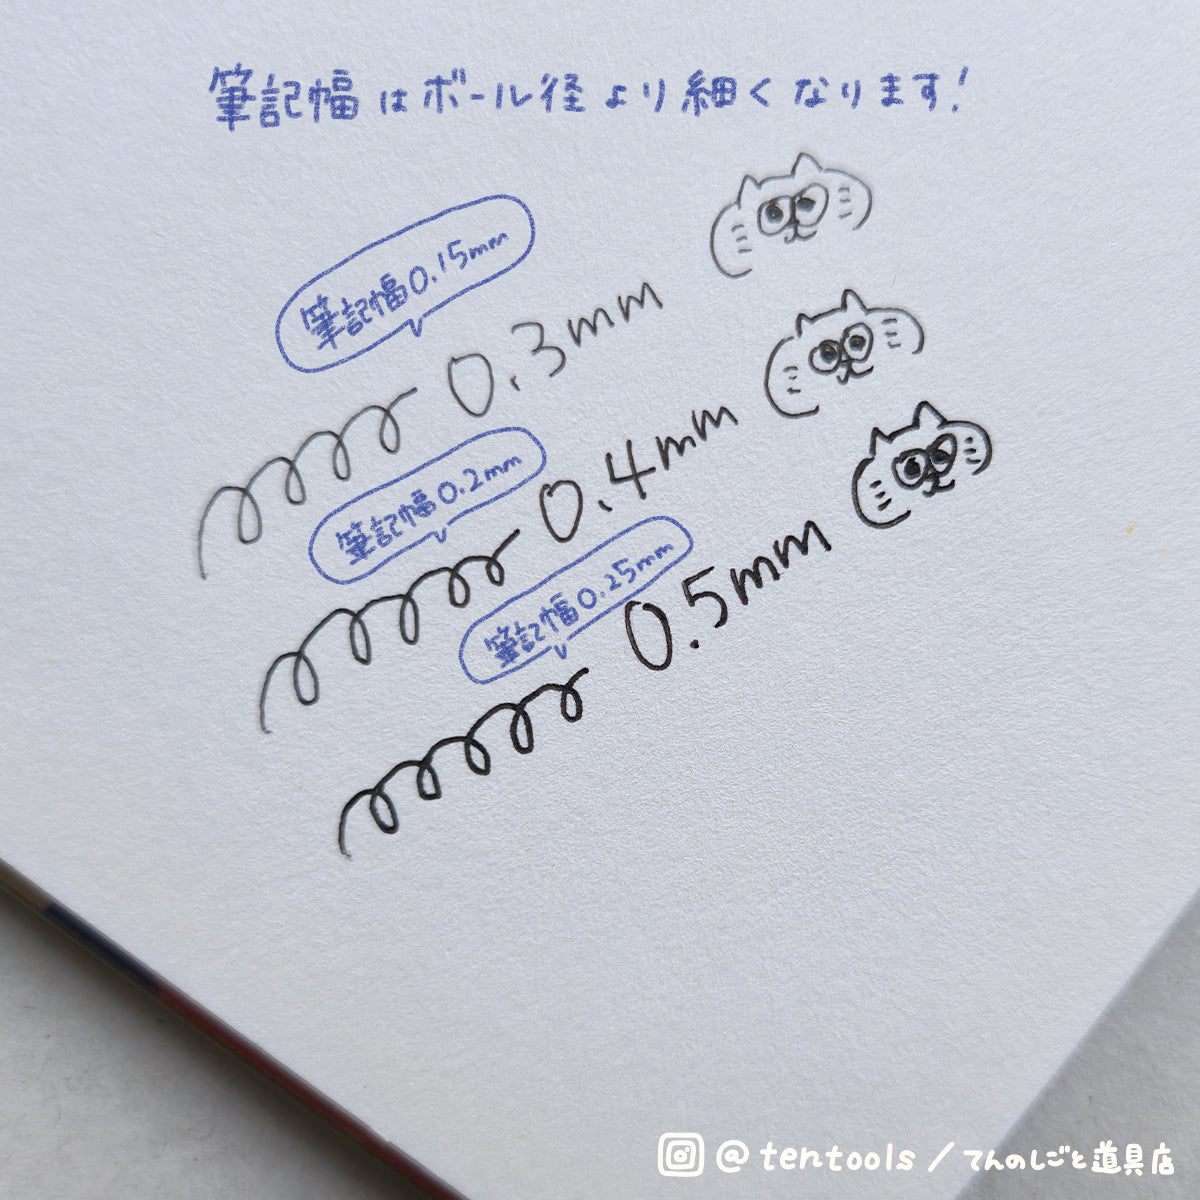 筆記幅はボール径より細くなります!
筆記幅0.15mm
0.3mm
筆記幅0.2mm
0.4mm
筆記幅0.25mm
0.5mm
@tentools/てんのしごと道具店